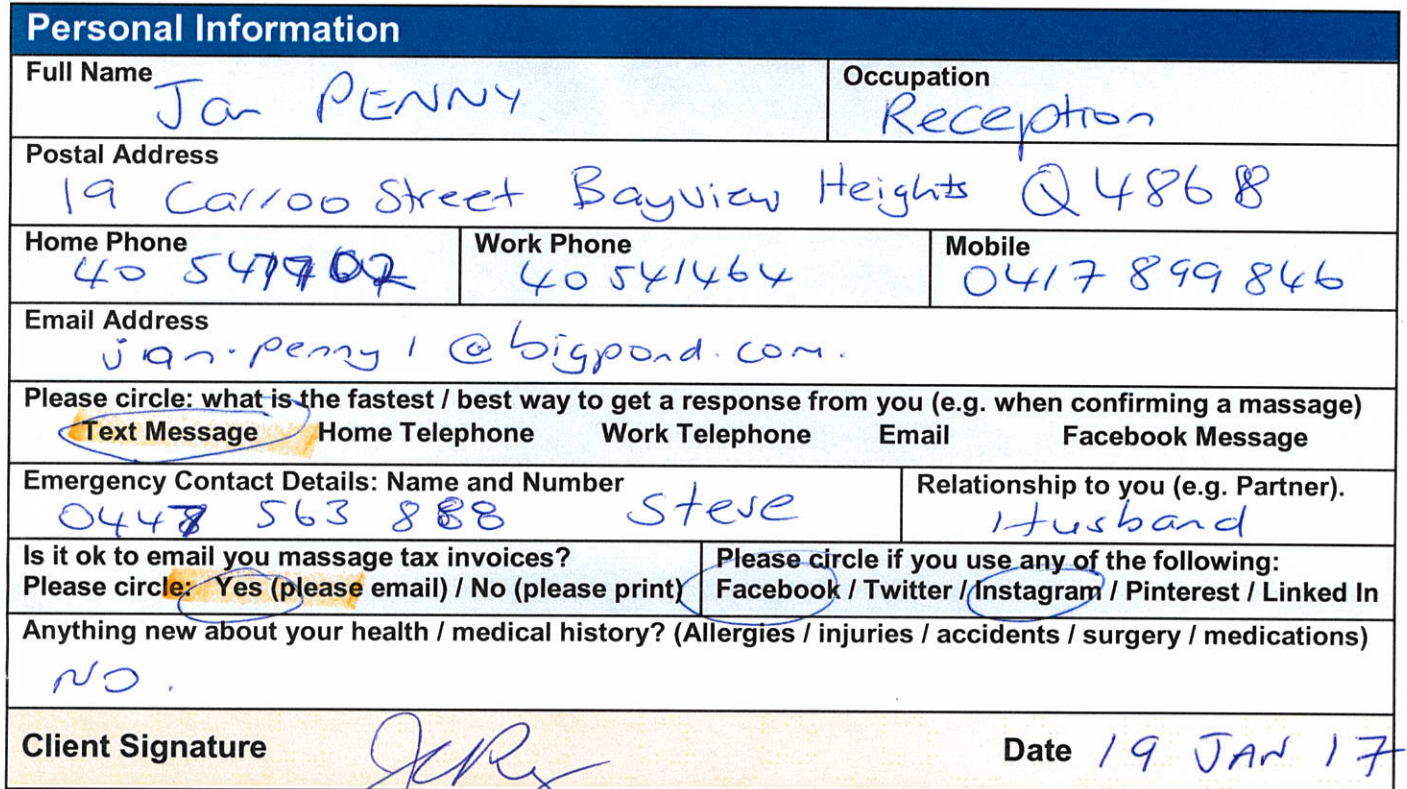 Personal Information
Full Name Jan PENNY Occupation Reception
Postal Address
19 Carroo Street Bayview Heights Q 4868
Home Phone Work Phone Mobile
40 54 40 541464 0417 899 846
Email Address
jan.penny1@bigpond.com.
Please circle: what is the fastest / best way to get a response from you (e.g. when confirming a massage)
Text Message Home Telephone Work Telephone Email Facebook Message
Emergency Contact Details: Name and Number Relationship to you (e.g. Partner).
0447 563 888 Steve Husband
Is it ok to email you massage tax invoices? Please circle if you use any of the following:
Please circle: Yes (please email) / No (please print) Facebook / Twitter / Instagram / Pinterest / Linked In
Anything new about your health / medical history? (Allergies / injuries / accidents / surgery / medications)
NO.
Client Signature Date 19 JAN 17